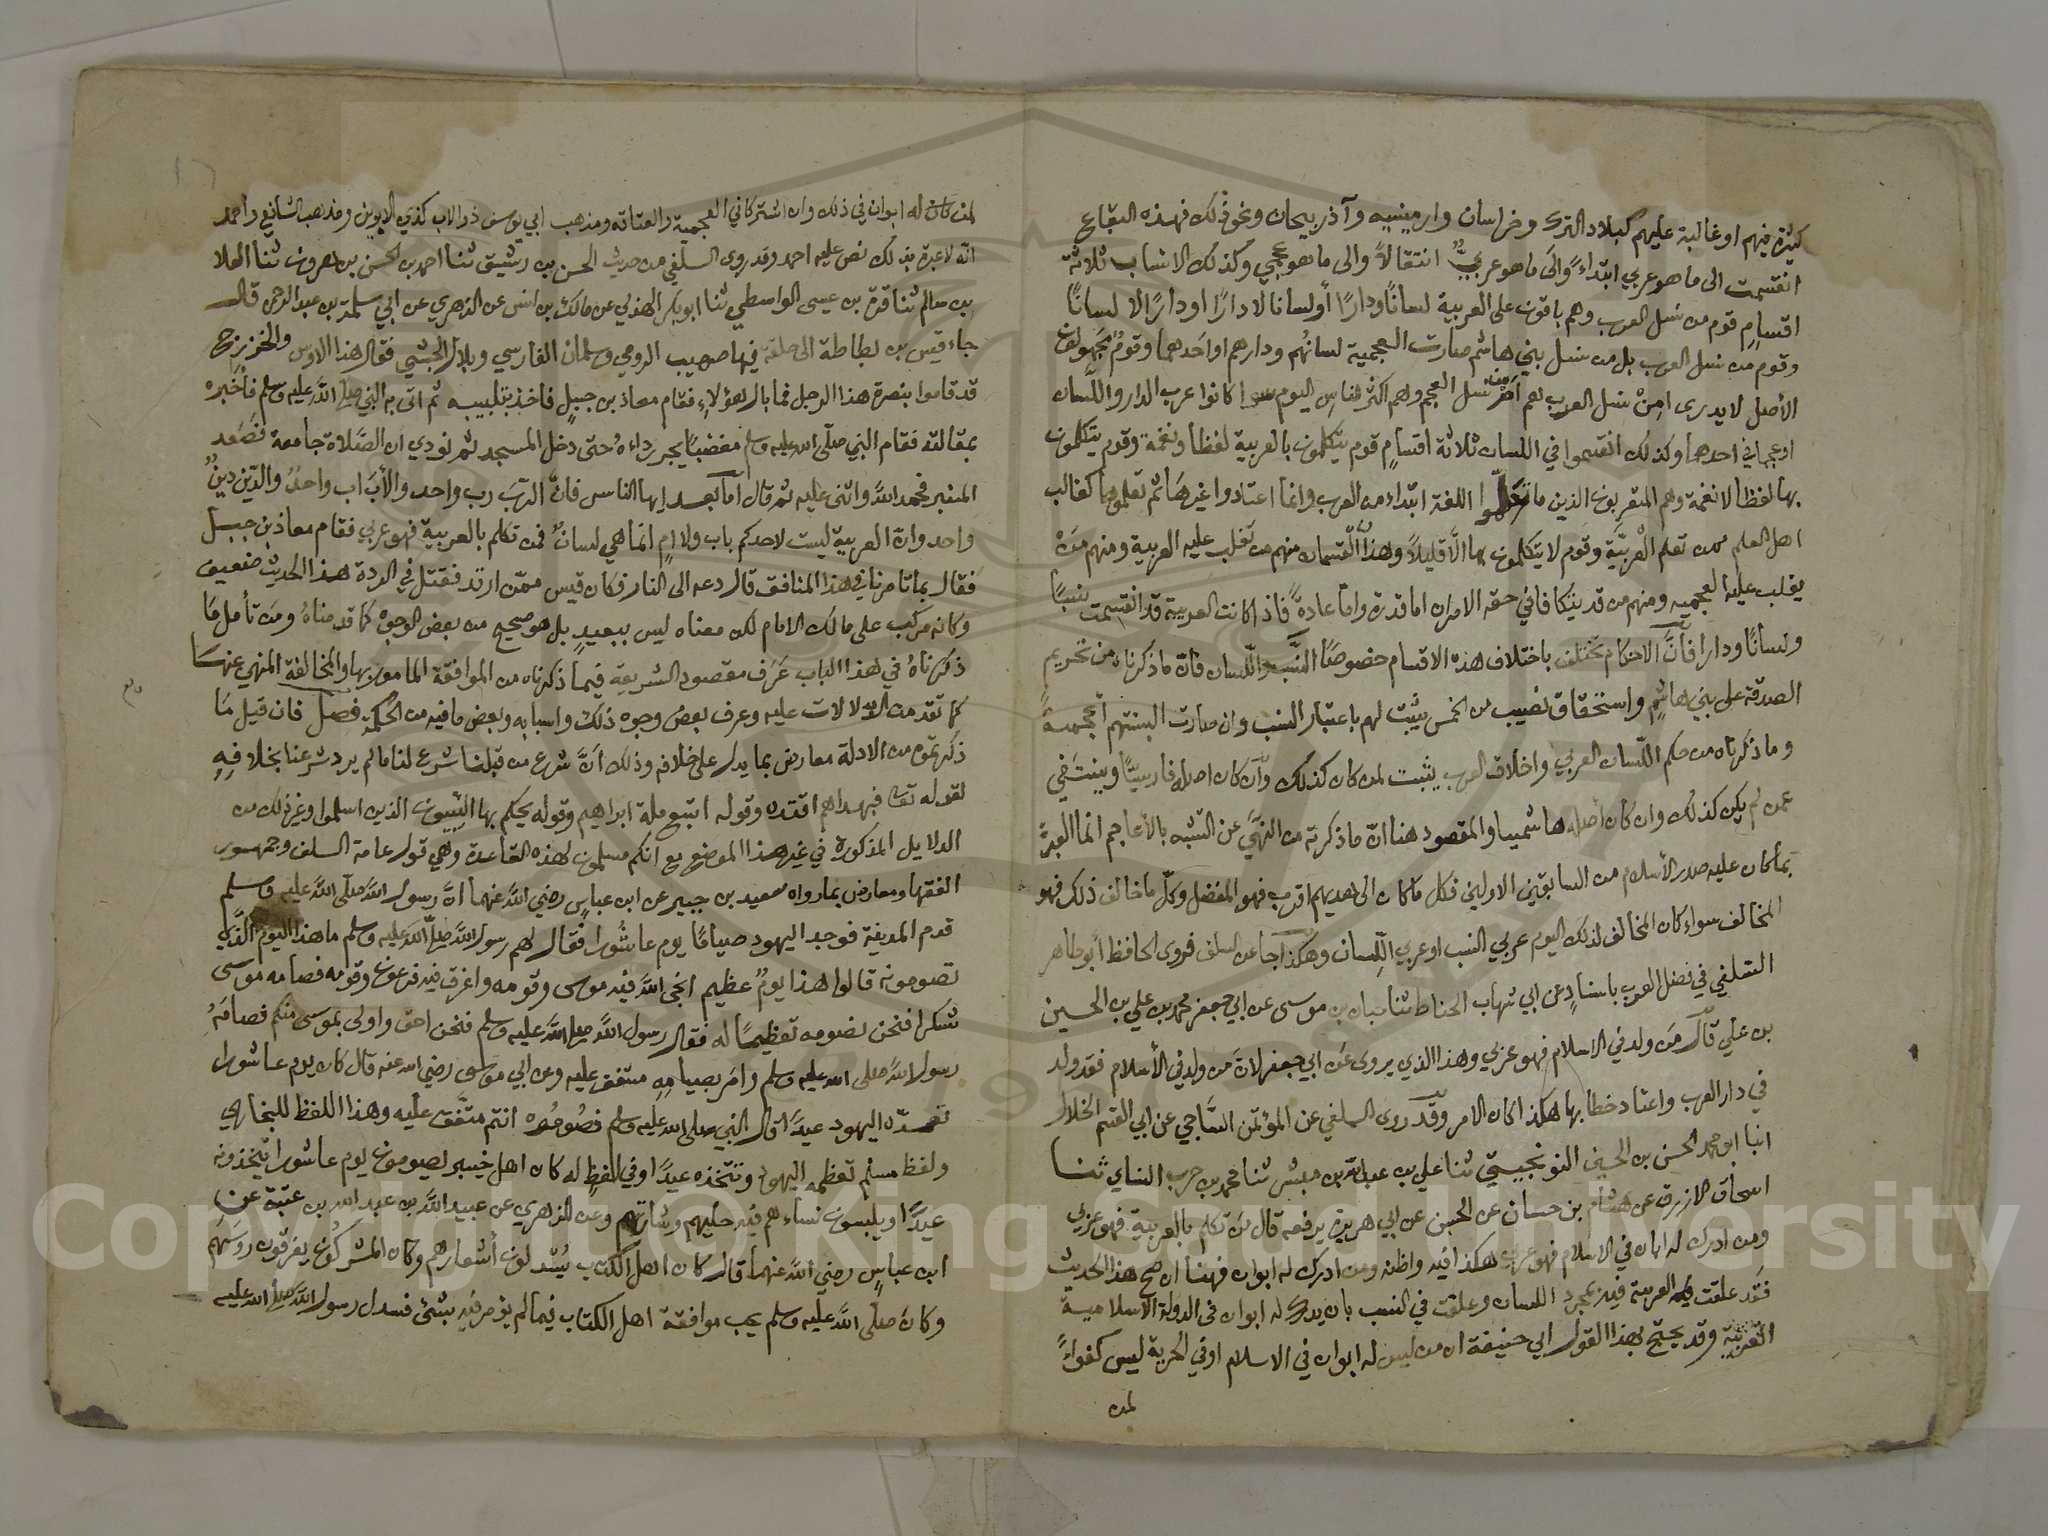 كثيرة فيهم او غالبة عليهم كبلاد الترك وخراسان وارمينيه وآذربيحان ونحو ذلك فهذه البقاع
انقسمت الى ما هو عربي ابتداءً والى ما هو عربيٌّ انتقالاً والى ما هو عجمي وكذلك الانساب ثلاثة
اقسام قوم من نسل العرب وهم باقون على العربية لسانًا ودارًا أو لسانا لا دارًا او دارًا لا لسانًا
وقوم من نسل العرب بل من نسل بني هاشم صارت العجمية لسانهُم ودارهم او احدهما وقومٌ مجهولون
الأصل لا يدرى امِنْ نسل العرب هم أم من نسل العجم وهم اكثر الناس اليوم سوا كانوا عرب الدار واللسان
او عجما في احدهما وكذلك انقسموا في اللسان ثلاثة اقسامٍ قوم يتكلمون بالعربية لفظا ونغمة وقوم يتكلمون
بها لفظا لا نغمة وهم المتعربون الذين ما تعلموا اللغة ابتداء من العرب وانما اعتادوا غيرهَا ثم تعلموها كغالب
اهل العلم ممن تعلم العربيَّة وقوم لا يتكلمون بها الَّا قليلاً وهذا القسمان منهم من تغلب عليه العربية ومنهم مَنْ
يغلب عليه العجميه ومنهم من قد يتكافا في حقه الامران اما قدرة واما عادةً فاذا كانت العربية قد انقسمت نسبًا
ولسانًا ودارا فانَّ الاحكام تختلف باختلاف هذه الاقسام خصوصًا النسَب واللّسان فانّ ما ذكرناه من تحريم
الصدقة على بني هاشمٍ واستحقاق نصيب من الخمس يثبت لهم باعتبار النسب وان صارت السنتهم أعجميةً
وما ذكرناه من حكم اللّسان العربي واخلاق العرب يثبت لمن كان كذلك وَان كان اصله فارسيًّا وينتَفي
عمن لم يكن كذلك وان كان أصله هاشميا والمقصود هنا انّ ما ذكرته من النهي عن التشبه بالأعاجم انما العبرَة
بما كان عليه صدر الأسلام من السابقين الاولين فكل ما كان الى هديهم اقرب فهو المفضل وكلّ ما خالف ذلك فهو
المخالف سواء كان المخالف لذلك اليوم عربي النسب او عربي اللّسان وهكذا جا عن السلف فروى الحافظ أبو طاهر
السّلفي في فضل العرب باسنادٍ عن ابي شهاب الحناط ثنا حبان بن موسى عن ابي جعفر محمد بن علي بن الحسين
بن علي قالَ مَن ولد في الاسلام فهو عربي وهذا الذي يروى عن ابي جعفر لانَ من ولد في الأسلام فقد ولد
في دار العرب واعتاد خطابها هكذا كان الامر وقَد روى السلفي عن المؤتمن السَّاجي عن ابي القسم الخلال
انبا ابو محمد الحسن بن الحسين النوبجيتي ثنا علي بن عبد الله بن مبشر ثنا محمد بن حرب النساي ثنا
اسحاق الازرق عن هشام بن حسان عن الحسن عن ابي هريرة يرفعه قال مَن تكلم بالعربية فهو عربي
ومن ادرك له ابوان في الاسلام فهو عربي هكذا فيه واظنه ومن ادرك له ابوان فهنا ان صح هذا الحديث
فقَد علقت فيه العربية فيه بمجرد اللسان وعلقت في النسب بان يدرك له ابوان في الدولة الاسلامية
العَربيّة وقد يحتج بهذا القول ابي حنيفة ان من ليس له ابوان في الاسلام او في الحرية ليس كفؤاً
لمن
لمن كان له ابوان في ذلك وان اشتركا في العجمية والعتاقه ومذهب ابي يوسف ذو الاب كذي الابوين ومذهب الشافعي واحمد
انه لا عبرة بذلك نص عليه احمد وقد روى السلفي من حديث الحسن بن رشيق ثنا احمد بن الحسن بن هرون ثنا العلا
بن سالم ثنا قرة بن عيسى الواسطي ثنا ابو بكر الهذلي عن مالك بن انس عن الزهري عن ابي سلمة بن عبد الرحمن قال
جا قيس بن بطاطة الى حلقة فيها صهيب الرومي وسلمان الفارسي وبلال الحبشي فقال هذا الاوس والخزرج
قد قاموا بنصرة هذا الرجل فما بال هؤلاءِ فقام معاذ بن جبلٍ فاخذ بتلبيبه ثم اتى به النبي صلى الله عليه وسلم فأخبره
بمقالته فقام النبي صلى الله عليه وسلم مغضبًا يجر رداءهُ حتى دخل المسجد ثم نودي ان الصَّلاة جامعة فصَعد
المنبر فحمد الله واثنى عليه ثم قال امّا بعد ايها الناس فانَّ الربَ رب واحد والأبَ اب واحدٌ والدّين دينٌ
واحد وانّ العربية ليست لاحدكم باب ولا امٍ انما هي لسانٌ فمن تكلم بالعربية فهو عربي فقام معاذ بن جبل
فقال بما تامرنا في هذا المنافق قال دعه الى النار فكان قيس ممّن ارتد فقتل في الردة هذا الحديث ضعيف
وكانه مركب على مالك الامام لكن معناه ليس ببعيدٍ بل هو صحيح من بعض الوجوه كما قدمناهُ ومَن تأمل مَا
ذكرناهُ في هذا الباب عَرَف مقصود الشريعة فيما ذكرناه من الموافقة المامور بها والمخالفة المنهي عنهَا
كما تقدمت الدلالات عليه وعرف بعض وجوه ذلك واسبابه وبعض ما فيه من الحكمة فصل فان قيل مَا
ذكرتموه من الادلة معارض بما يدل على خلافه وذلك انَّ شرع من قبلنا شرع لنا ما لم يرد شرعنا بخلافِهِ
لقوله تعا فبهداهم اقتده وقوله اتبع ملة ابراهيم وقوله يحكم بها النبيون الذين اسلموا وغير ذلك من
الدلايل المذكورة في غير هذا الموضع مع انكم مسلمون لهذه القاعدة وهي قول عامة السلف وجمهور
الفقها ومعارض بما رواه سعيد بن جبير عن ابن عباسٍ رضي الله عنهما انّ رسول الله صلّى الله عليه وسلم
قدم المدينة فوجد اليهود صيامًا يوم عاشُورا فقال لهم رسول الله صلّى الله عليه وسلم ما هذا اليوم الَّذي
تصومونه قالوا هذا يومٌ عظيم انجى الله فيه موسى وقومه واغرق فيه فرعون وقومه فصامه موسى
شكرا فنحن نصومه تعظيمًا له فقال رسول الله صلى الله عليه وسلم فنحن احق واولى بموسى منكم فصامَهُ
رسول الله صلى الله عليه وسلم وامَر بصيامِهِ متفق عليه وعن ابي موسى رضي الله عنه قال كان يوم عاشورا
تعدّه اليهود عيدًا قال النبي صلى الله عليه وسلم فصُومُوه انتم متَّفق عليه وهذا اللفظ للبخاري
ولفظ مسلم تعظمه اليهود وتتخذه عيدًا وفي لفظٍ له كان اهل خيبر يصومون يوم عاشورا يتخذونه
عيدًا ويلبسون نساءهم فيه حليهم وشارتهم وعن الزهري عن عبيد الله بن عبد الله بن عتبة عن
ابن عباسٍ رضي الله عنهما قال كان اهل الكتاب يُسْدلون أشعارهم وكان المشركُون يفرقون روسَهُم
وكانَ صلّى الله عليه وسلم يحب موافقة اهل الكتاب فيما لم يؤمر فيه بشئ فسدل رسول الله صلى الله عليه
Copyright © King Saud University